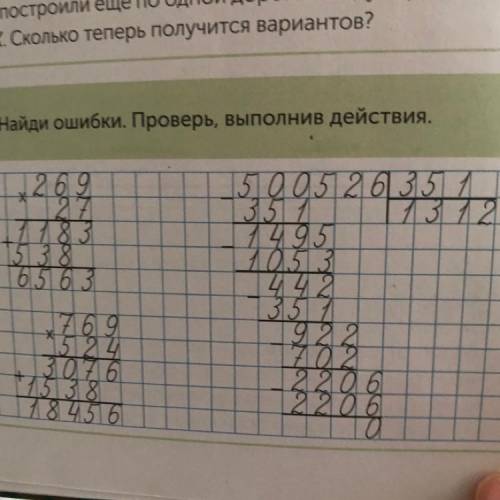 построили ещё по одной
Сколько теперь получится вариантов?
Найди ошибки. Проверь, выполнив действия.
× 269
27
+ 1183
538
6563
× 769
524
+ 3076
1538
18456
- 500526 | 351
351 | 1312
- 1495
1053
- 442
351
- 922
702
- 2206
2206
0